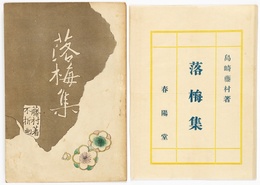 落梅集
藤村著
島崎藤村著
落梅集
春陽堂